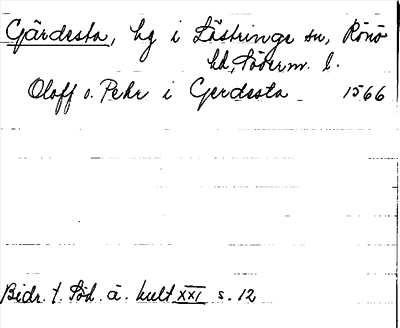 Gärdesta, hg i Lästringe sn, Rönö
hd, Söderm. l.
Oloff o. Pehr i Gerdesta 1566
Bidr. t. Söd. ä. kult XXI s. 12